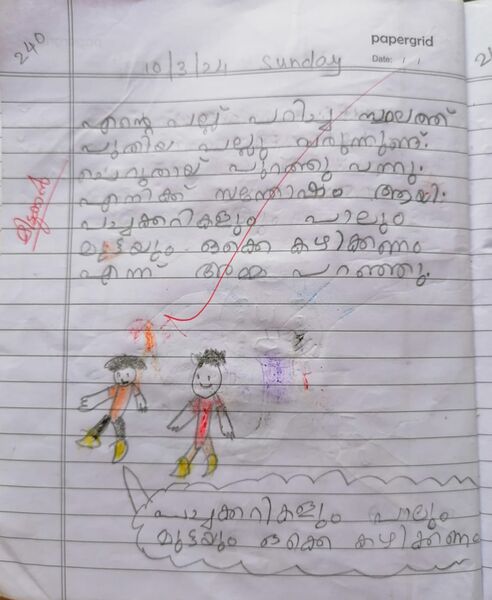 240
papergrid
Date: / /
10/3/24 Sunday
എന്റെ പല്ല് പറിച്ച സ്ഥലത്ത്
പുതിയ പല്ലു വരുന്നുണ്ട്.
ചെറുതായ് പുറത്തു വന്നു.
എനിക്ക് സന്തോഷം ആയി.
പച്ചക്കറികളും പാലും
മുട്ടയും ഒക്കെ കഴിക്കണം
എന്ന് അമ്മ പറഞ്ഞു.
മിടുക്കൻ
പച്ചക്കറികളും പാലും
മുട്ടയും ഒക്കെ കഴിക്കണം